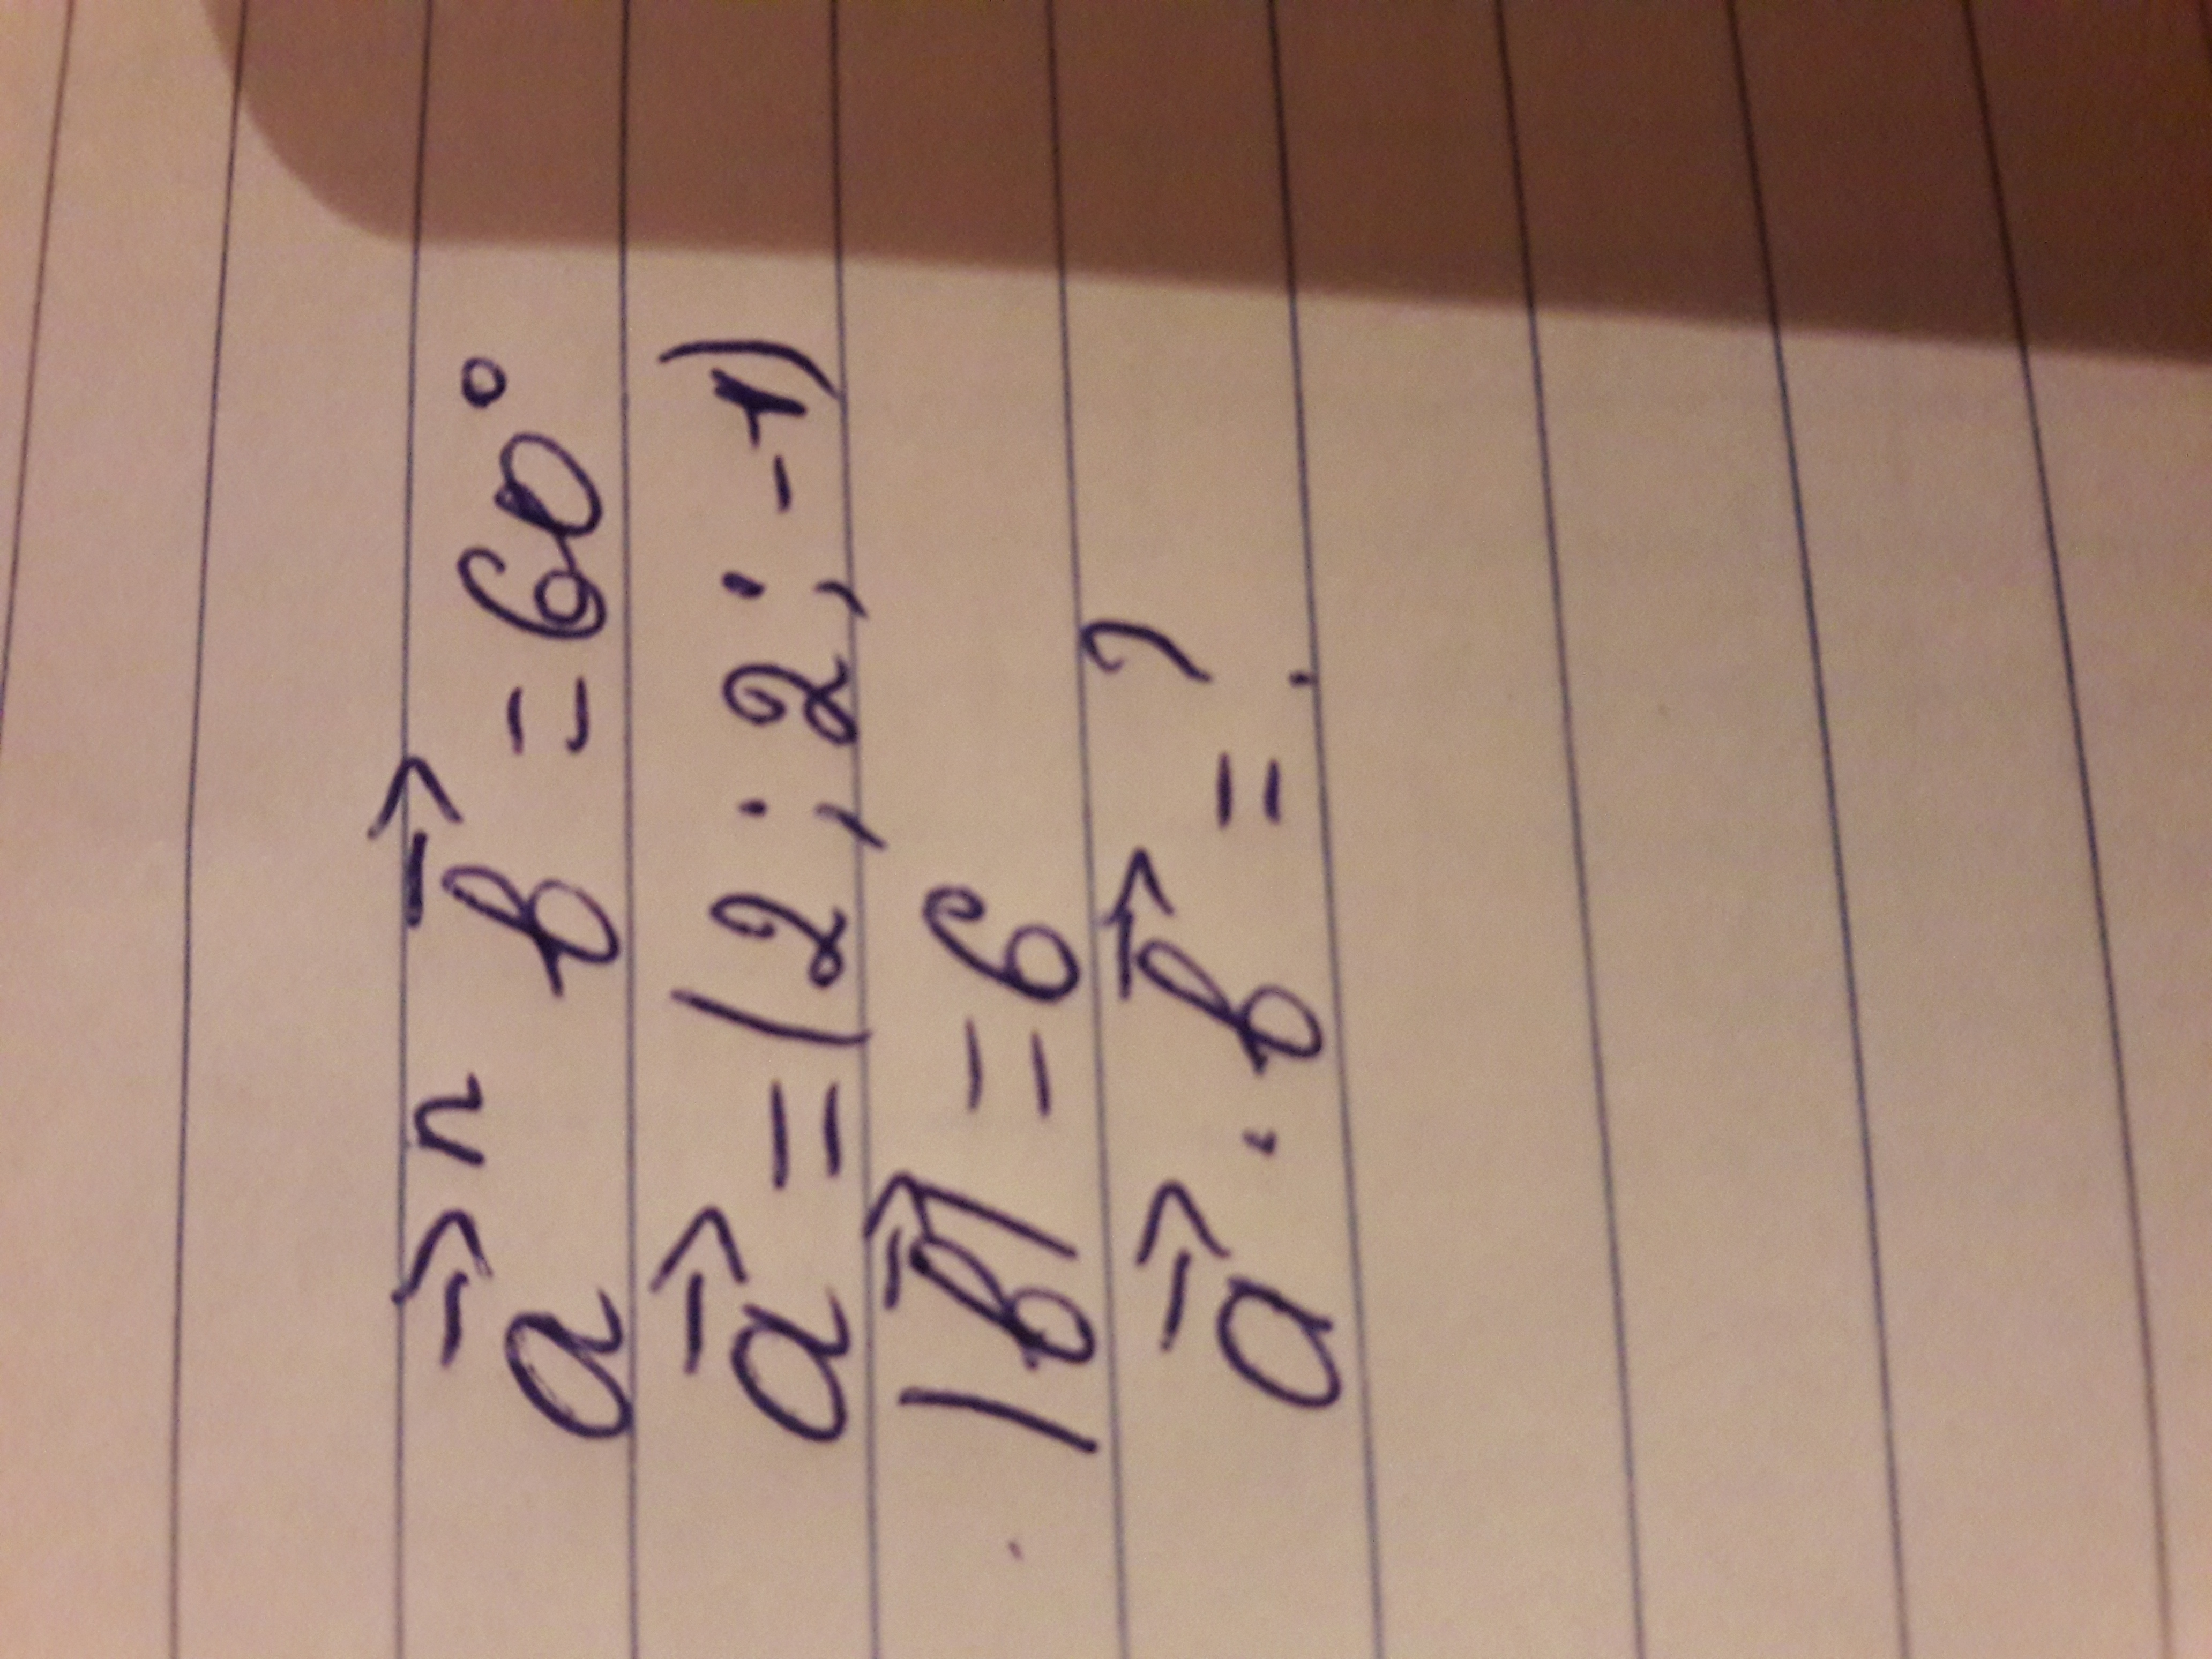 a⃗ ^ b⃗ = 60°
a⃗ = (2; 2; -1)
|b⃗| = 6
a⃗ · b⃗ = ?